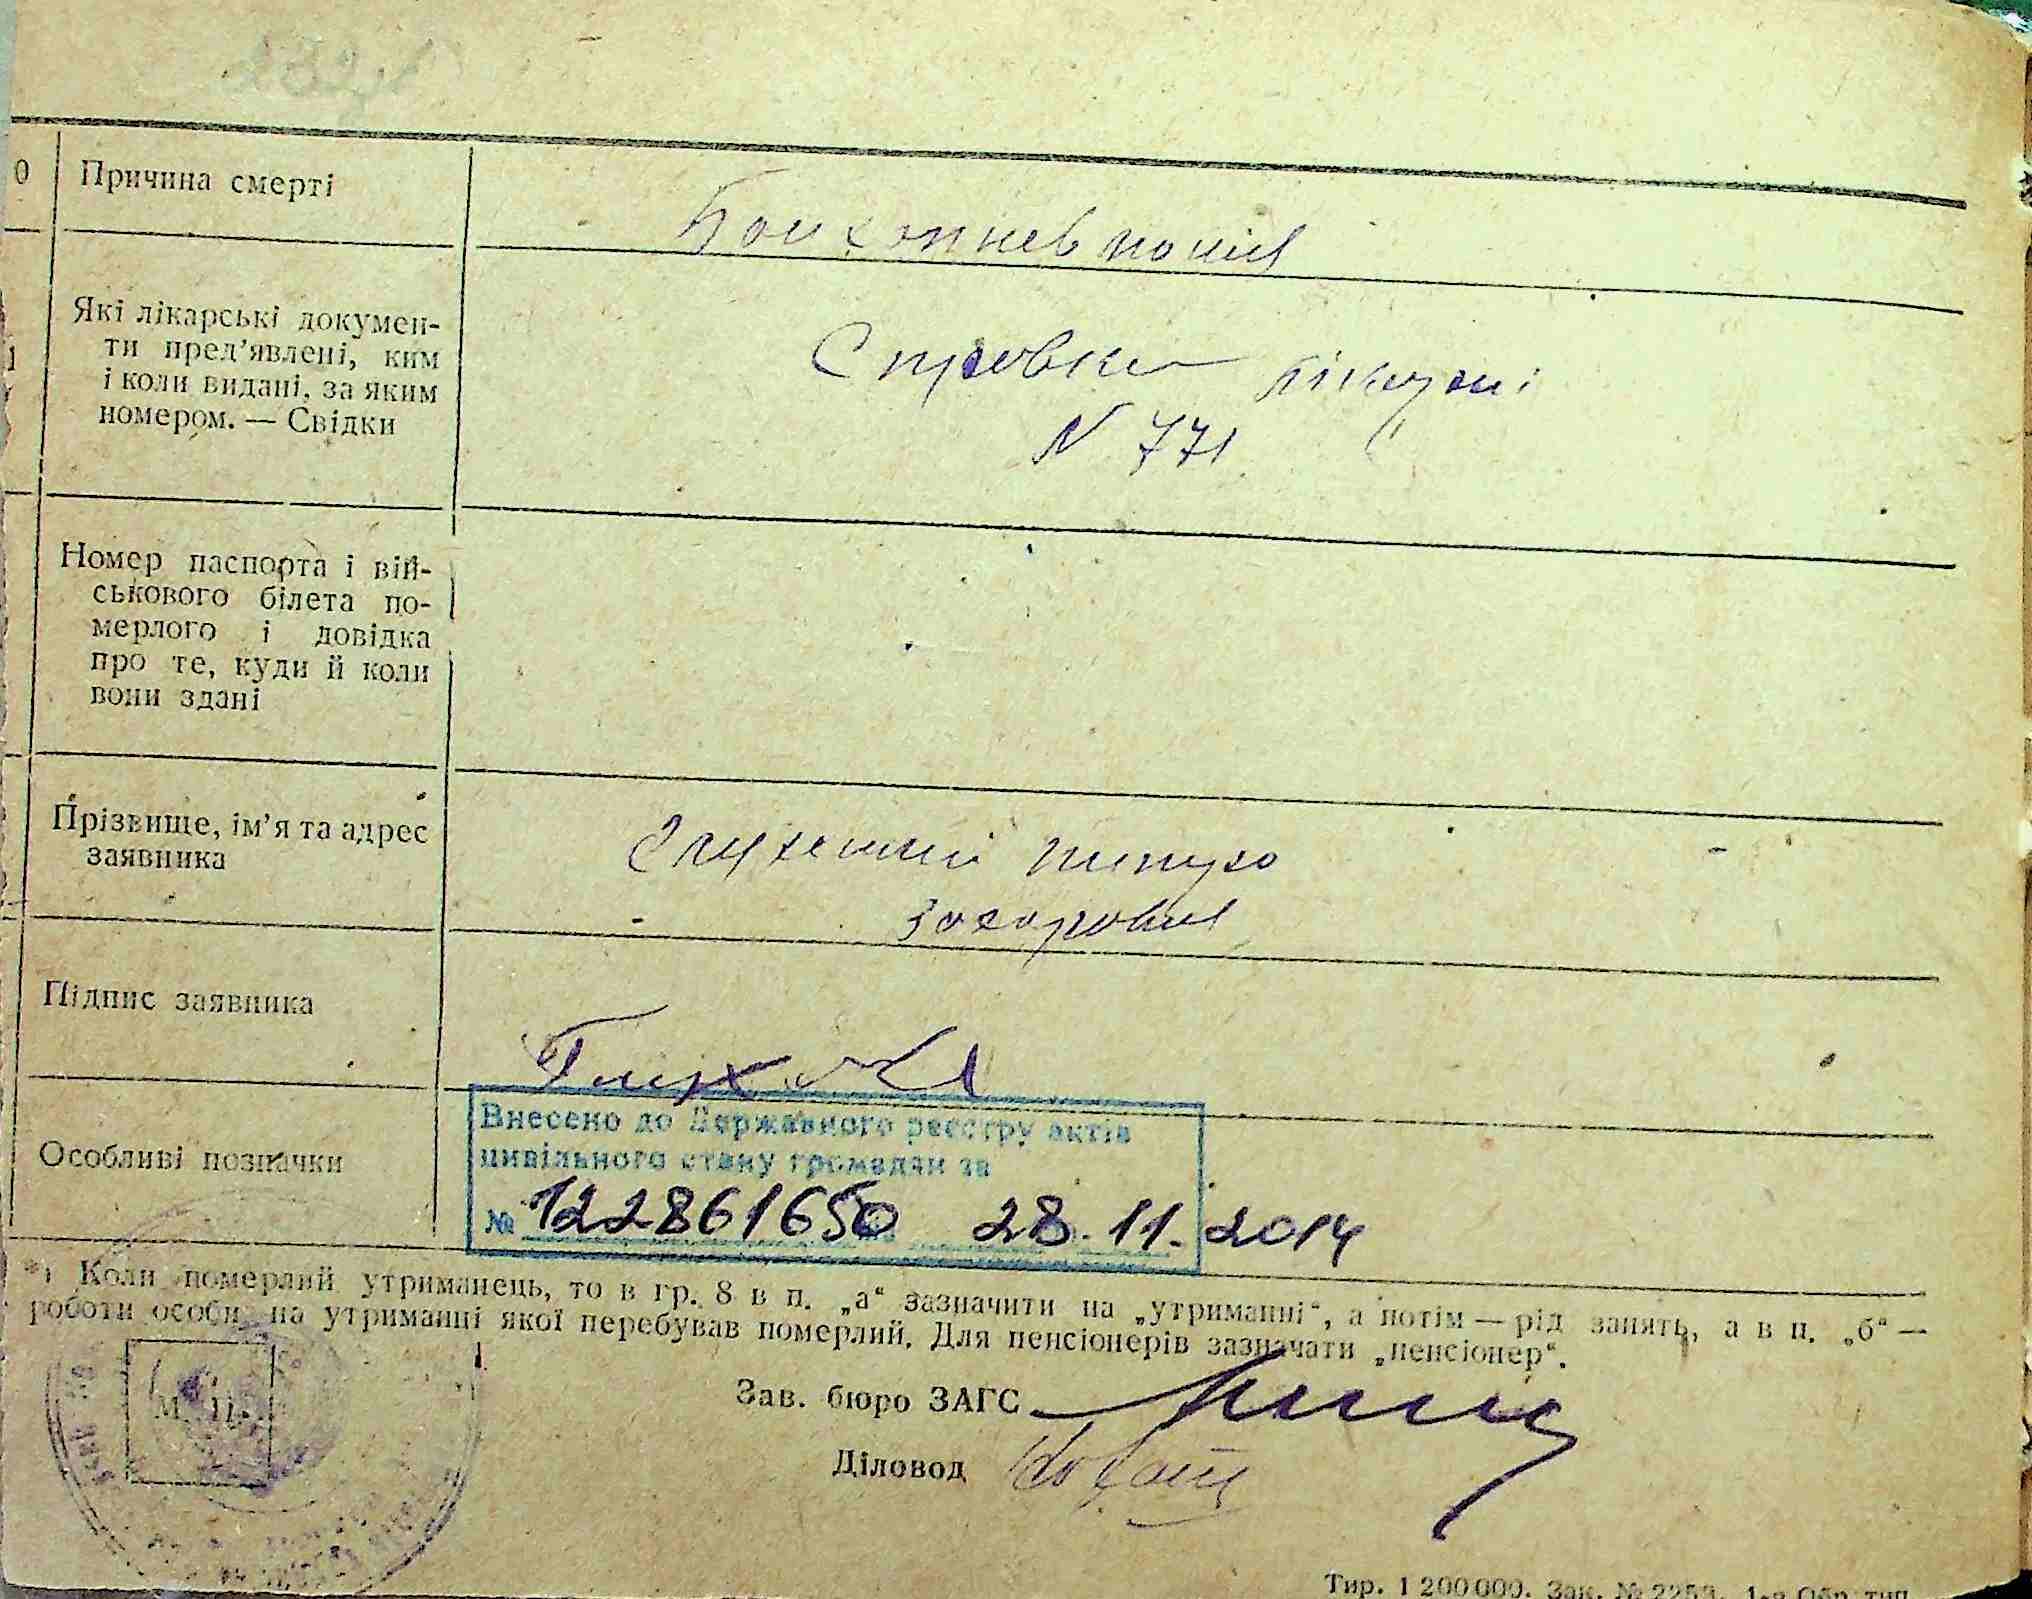 0 Причина смерті
Бронхопневмонія
1 Які лікарські докумен-
ти пред’явлені, ким
і коли видані, за яким
номером. — Свідки
Справка лікарні
N 771
Номер паспорта і вій-
ськового білета по-
мерлого і довідка
про те, куди й коли
вони здані
Прізвище, ім’я та адрес
заявника
Підпис заявника
Особливі позначки
Внесено до Державного реєстру актів
цивільного стану громадян за
№ 122861650 28.11.2014
*) Коли померлий утриманець, то в гр. 8 в п. „а“ зазначити на „утриманні“, а потім — рід занять, а в п. „б“ —
роботи особи, на утриманні якої перебував померлий. Для пенсіонерів зазначати „пенсіонер“.
М. П.
Зав. бюро ЗАГС
Діловод
Тир. 1 200 000. Зак. № 2253. 1-а Обр. тип.